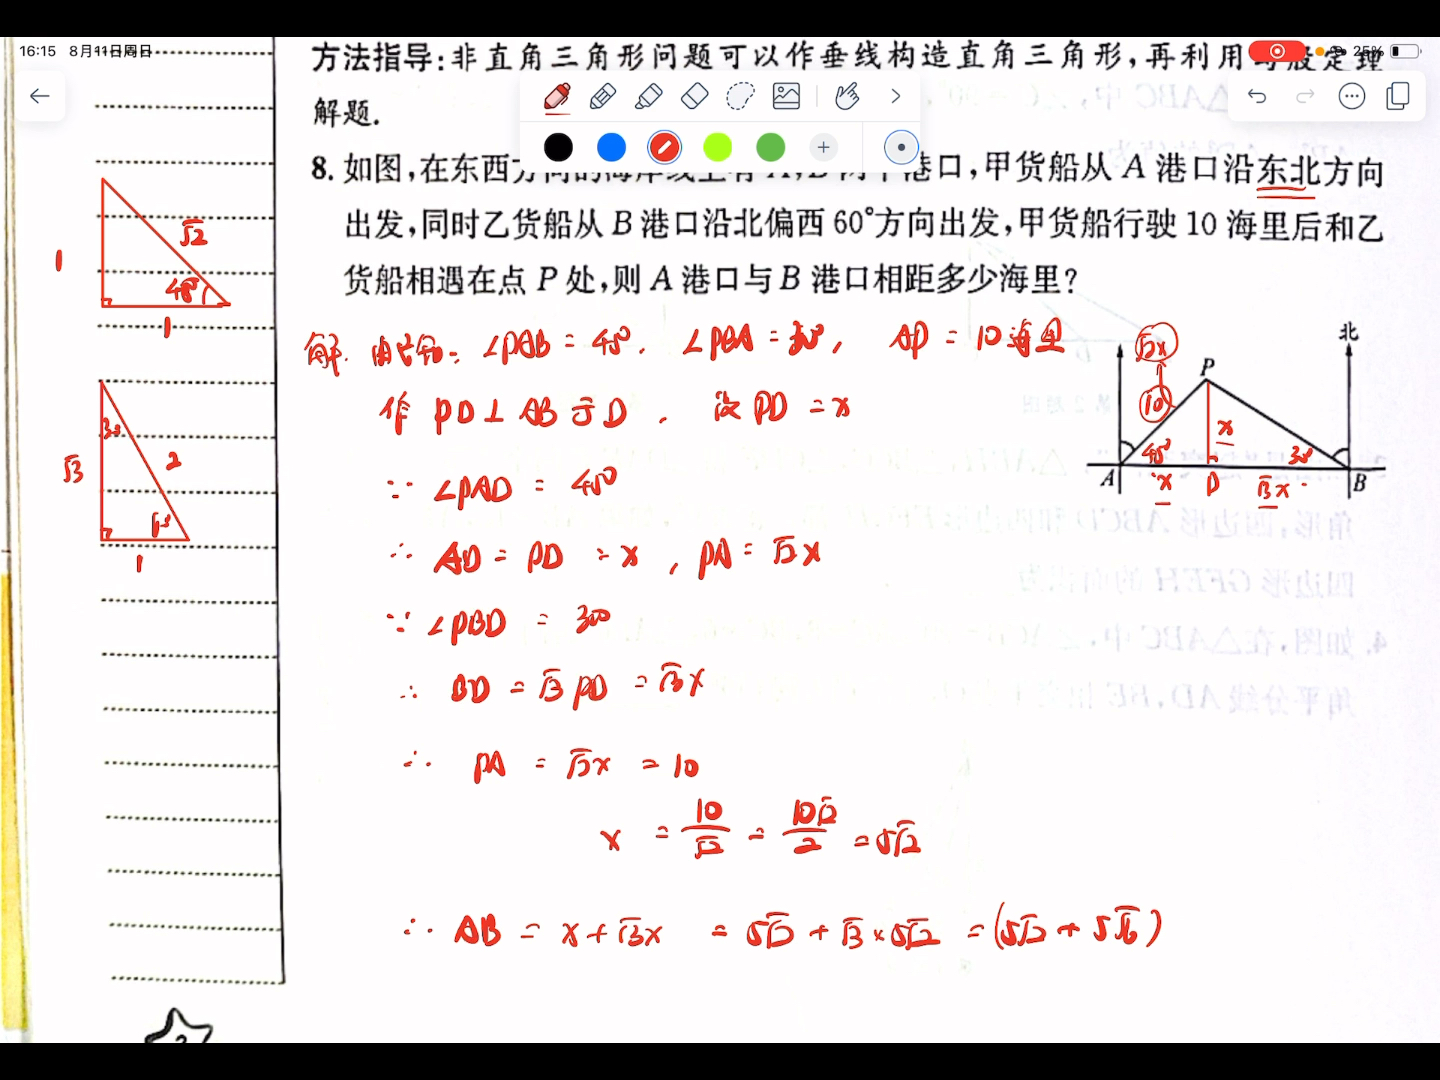 16:15 8月11日周日
25%
方法指导:非直角三角形问题可以作垂线构造直角三角形,再利用勾股定理
解题.
8. 如图,在东西方向的海岸线上有 A,B 两个港口,甲货船从 A 港口沿东北方向
出发,同时乙货船从 B 港口沿北偏西 60°方向出发,甲货船行驶 10 海里后和乙
货船相遇在点 P 处,则 A 港口与 B 港口相距多少海里?
1
√2
45°
1
30°
√3
2
60°
1
北
√2x
P
10
x
45°
30°
A
x
D
√3x
B
解: 由已知: ∠PAB = 45°, ∠PBA = 30°, AP = 10海里
作 PD⊥AB于D, 设PD = x
∵ ∠PAD = 45°
∴ AD = PD = x, PA = √2x
∵ ∠PBD = 30°
∴ BD = √3PD = √3x
∴ PA = √2x = 10
x = 10/√2 = 10√2/2 = 5√2
∴ AB = x+√3x = 5√2 + √3×5√2 = (5√2 + 5√6)